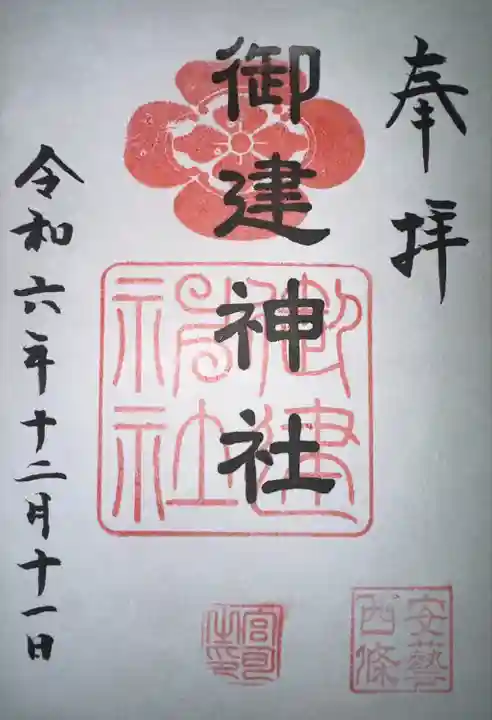 奉拝
御建神社
令和六年十二月十一日
御建神社
安藝西條
宮司之印